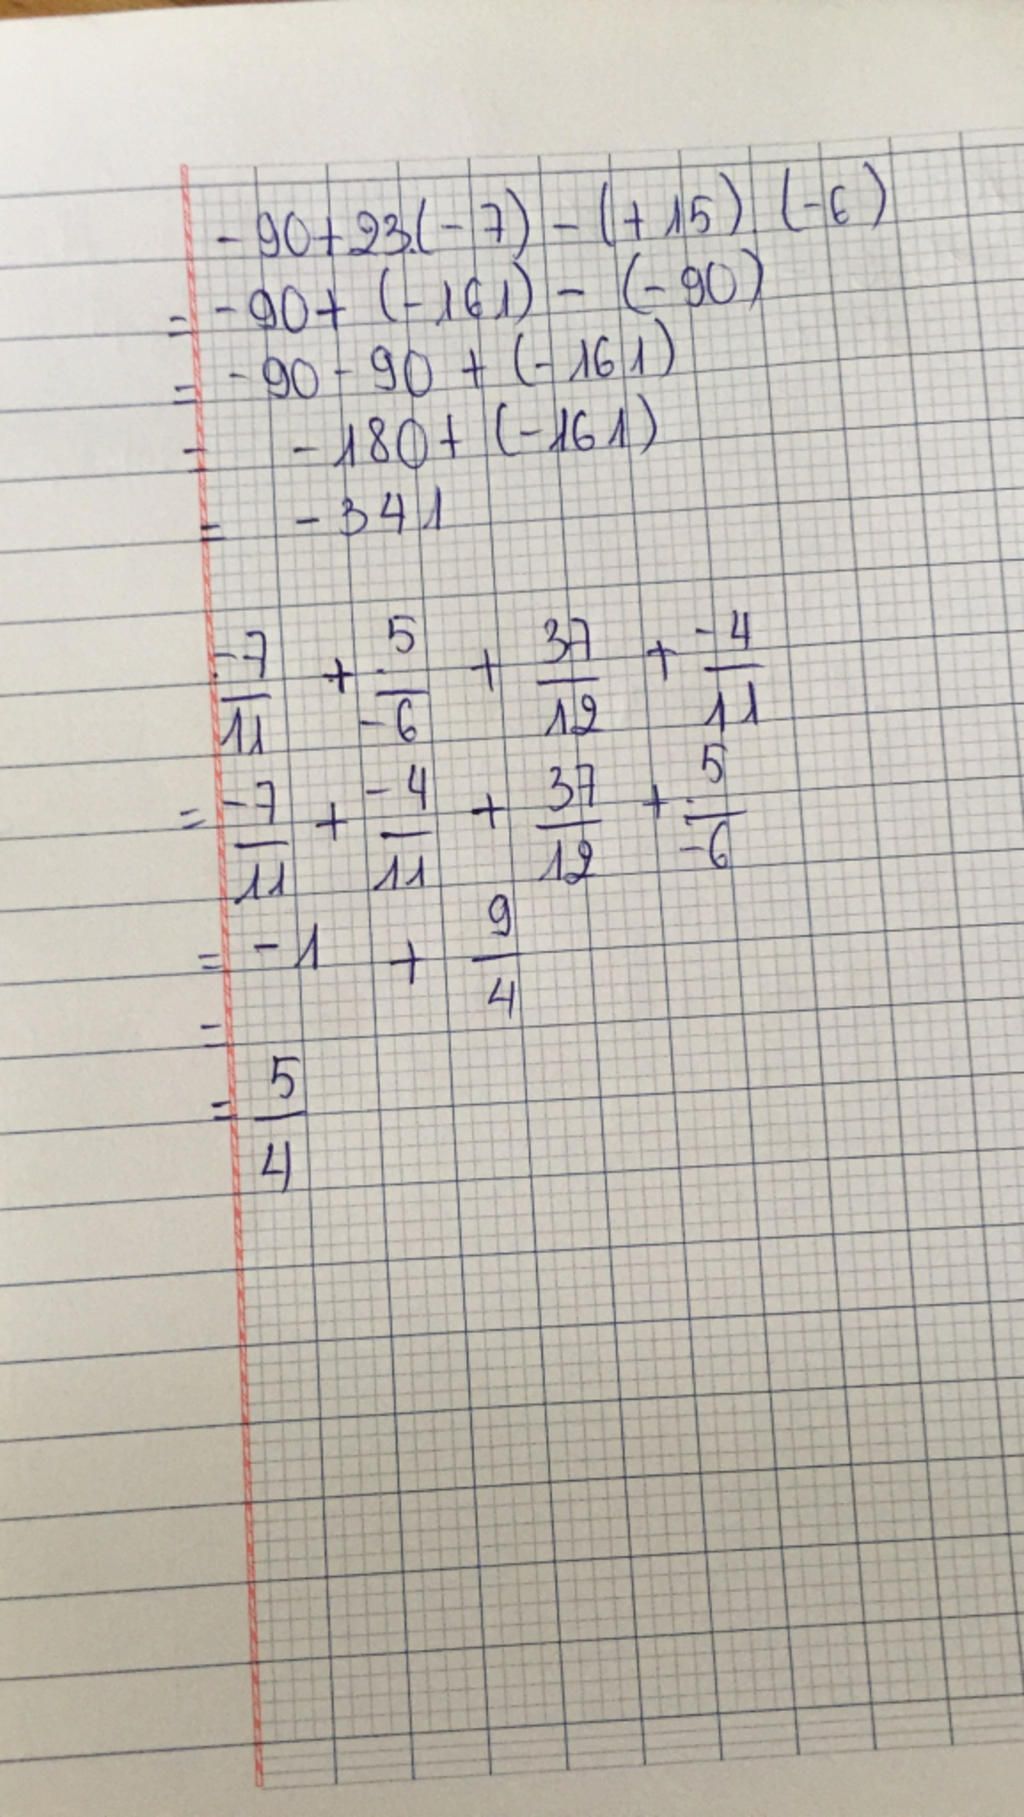 -90+23.(-7)-(+15).(-6)
= -90+(-161)-(-90)
= -90-90+(-161)
= -180+(-161)
= -341
-7/11 + 5/-6 + 37/12 + -4/11
= -7/11 + -4/11 + 37/12 + 5/-6
= -1 + 9/4
=
= 5/4